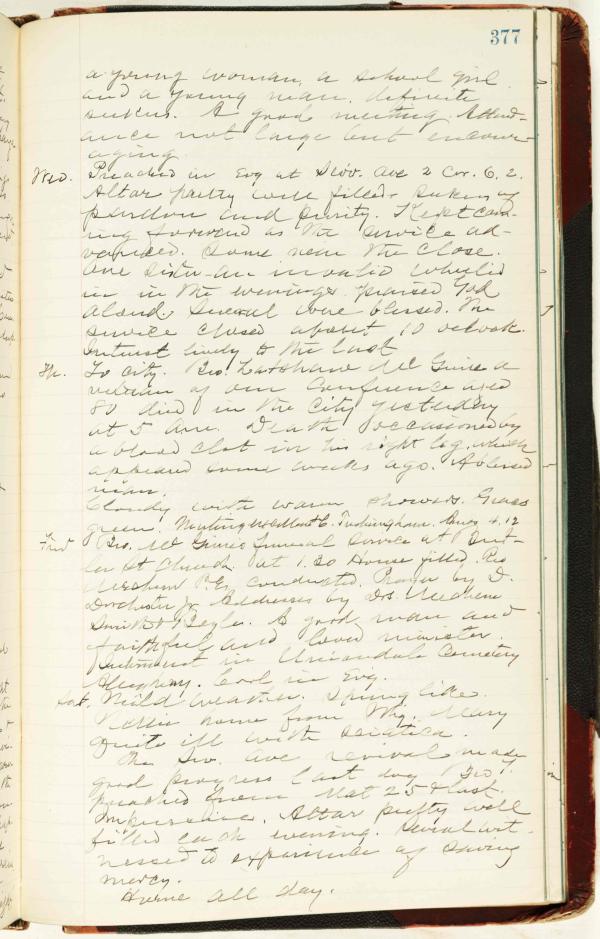 377
a young woman, a school girl
and a young man. definite
seekers. A good meeting. Attend-
ance not large but encour-
aging.
Wed. Preached in Evg at Ave 2 Cor. 6. 2.
Altar pretty well filled - seekers of
pardon and purity. Kept com-
ing forward as the service ad-
vanced. Some near the close.
One sister - an invalid wheeled
in in the evenings praised God
aloud. Several were blessed. The
service closed about 10 oclock.
Interest lively to the last
Th. To city. Bro. Latshaw Mc Guire a
veteran of our Conference aged
80 died in the City yesterday
at 5 Am. Death occasioned by
a blood clot in his right leg, which
appeared some weeks ago. A blessed
man.
Cloudy with warm showers. Grass
green. Meeting 4.12
Frid Bro. Mc Guire's funeral service at But-
ler St Church at 1.30 House filled. Bro
Mechem P.E. conducted. Prayer by D.
Dorchester Jr. Addresses by Drs. Mechem
Smith & A good man and
faithful and loved minister.
Interment in Uniondale Cemetery
Allegheny. Cool in Evg.
Sat. Mild weather. Spring like.
Nellie home from Mary
quite ill with sciatica.
The Ave revival made
good progress last day
preached from Mat 25 & last.
Impressive. Altar pretty well
filled each evening. Several wit-
nessed to experience of saving
mercy.
Home all day.